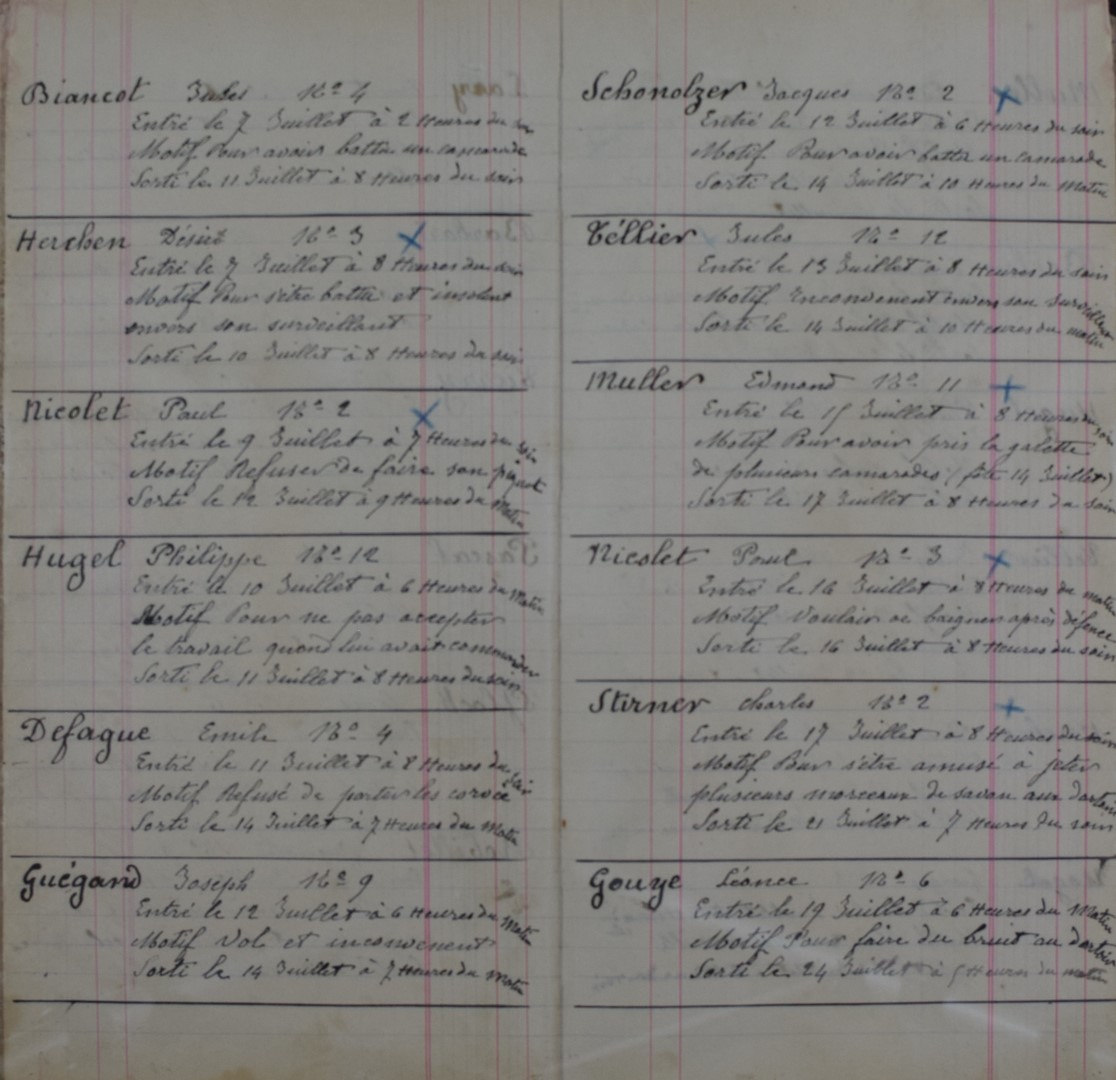 Biancot Jules No 4
Entré le 7 Juillet à 2 Heures du soir
Motif Pour avoir battu un camarade
Sorti le 11 Juillet à 8 Heures du soir
Herchen Désiré No 3
Entré le 7 Juillet à 8 Heures du soir
Motif Pour s'être battu et insolent
envers son surveillant
Sorti le 10 Juillet à 8 Heures du soir
Nicolet Paul No 2
Entré le 9 Juillet à 7 Heures du soir
Motif Refuser de faire son piquet
Sorti le 12 Juillet à 9 Heures du Matin
Hugel Philippe No 12
Entré le 10 Juillet à 6 Heures du Matin
Motif Pour ne pas accepter
le travail quond lui avait commander
Sorti le 11 Juillet à 8 Heures du soir
Defague Emile No 4
Entré le 11 Juillet à 8 Heures du soir
Motif Refusé de porter les corvée
Sorti le 14 Juillet à 7 Heures du Matin
Guégand Joseph No 9
Entré le 12 Juillet à 6 Heures du Matin
Motif Vol et inconvenent
Sorti le 14 Juillet à 7 Heures du Matin
Schonolzer Jacques No 2
Entré le 12 Juillet à 6 Heures du soir
Motif Pour avoir battu un camarade
Sorti le 14 Juillet à 10 Heures du Matin
Téllier Jules No 12
Entré le 13 Juillet à 8 Heures du soir
Motif Inconvenent envers son surveillant
Sorti le 14 Juillet à 10 Heures du matin
Muller Edmond No 11
Entré le 15 Juillet à 8 Heures du soir
Motif Pour avoir pris la galette
de plusieurs camarades (fête 14 Juillet)
Sorti le 17 Juillet à 8 Heures du soir
Nicolet Paul No 3
Entré le 16 Juillet à 8 Heures du matin
Motif Voulair se baigner après défence
Sorti le 16 Juillet à 8 Heures du soir
Stirner Charles No 2
Entré le 17 Juillet à 8 Heures du soir
Motif Pour s'être amusé à jeter
plusieurs morceaux de savon aux dortoirs
Sorti le 21 Juillet à 7 Heures du soir
Gouye Léance No 6
Entré le 19 Juillet à 6 Heures du Matin
Motif Pour faire du bruit au dortoir
Sorti le 24 Juillet à 5 Heures du matin